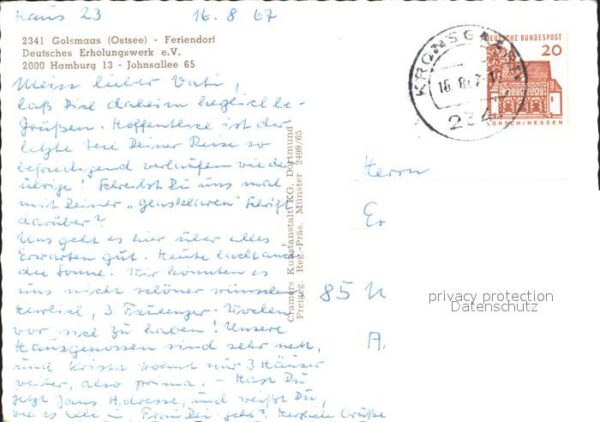 Haus 23 16.8.67
2341 Golsmaas (Ostsee) - Feriendorf
Deutsches Erholungswerk e.V.
2000 Hamburg 13 - Johnsallee 65
Mein lieber Vati,
laß Dich daheim herzlich be-
grüßen. Hoffentlich ist der
letzte Teil Deiner Reise so
befriedigend verlaufen wie der
übrige! Schreibst Du uns mal
mit Deiner "glasklaren" Schrift
darüber?
Uns geht es hier über alles
Erwarten gut. Heute lacht
die Sonne. Wir konnten es
uns nicht schöner wünschen
Herrlich, 3 Wochen
vor sich zu haben! Unsere
Hausgenossen sind sehr nett,
und Krista wohnt nur 3 Häuser
weiter, also prima. - Hast Du
jetzt Jans Adresse, und weißt Du,
wie es geht? Herzliche Grüße
Cramers Kunstanstalt KG. Dortmund
Freigeg. Reg.-Präs. Münster 2499/65
KRONSGAARD
16.8.67
234
DEUTSCHE BUNDESPOST
20
LORSCH/HESSEN
Herrn
Er
85 N
A.
privacy protection
Datenschutz